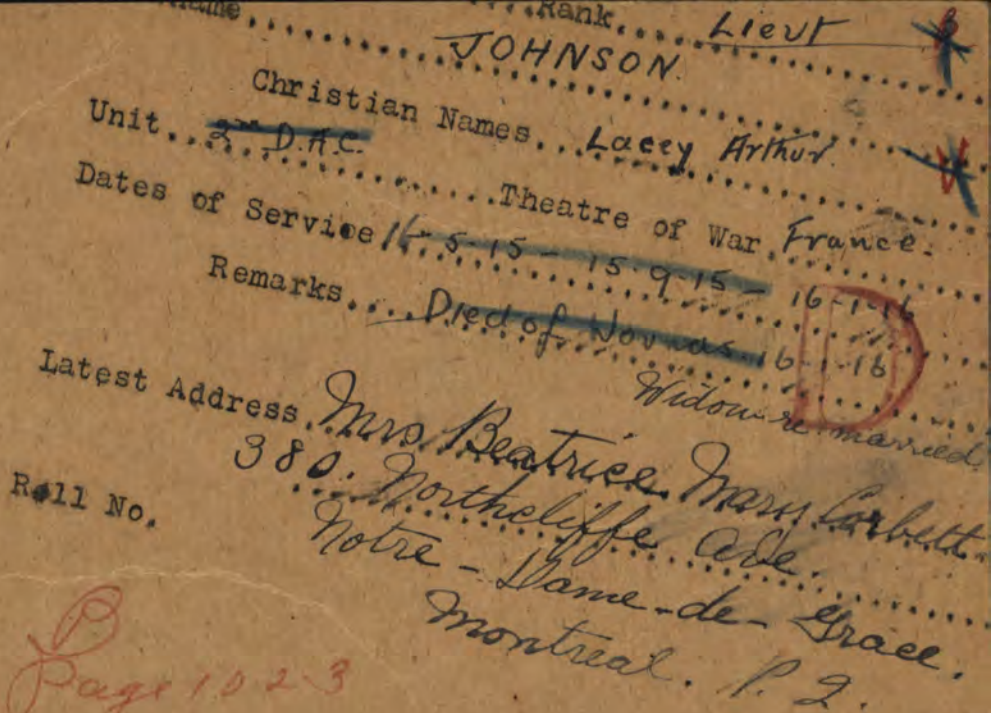 Rank.... Lieut
JOHNSON.
Christian Names... Lacey Arthur.
Unit.. 2nd D.A.C.
Theatre of War. France.
Dates of Service 15-5-15 - 15-9-15 - 16-1-16
Remarks.... Died of Wounds 16-1-16
D
Widow re married
Latest Address. Mrs Beatrice Mary Corbett.
380. Northcliffe Ave.
Notre-Dame-de-Grace.
Montreal. P.Q.
Roll No.
Page 1023